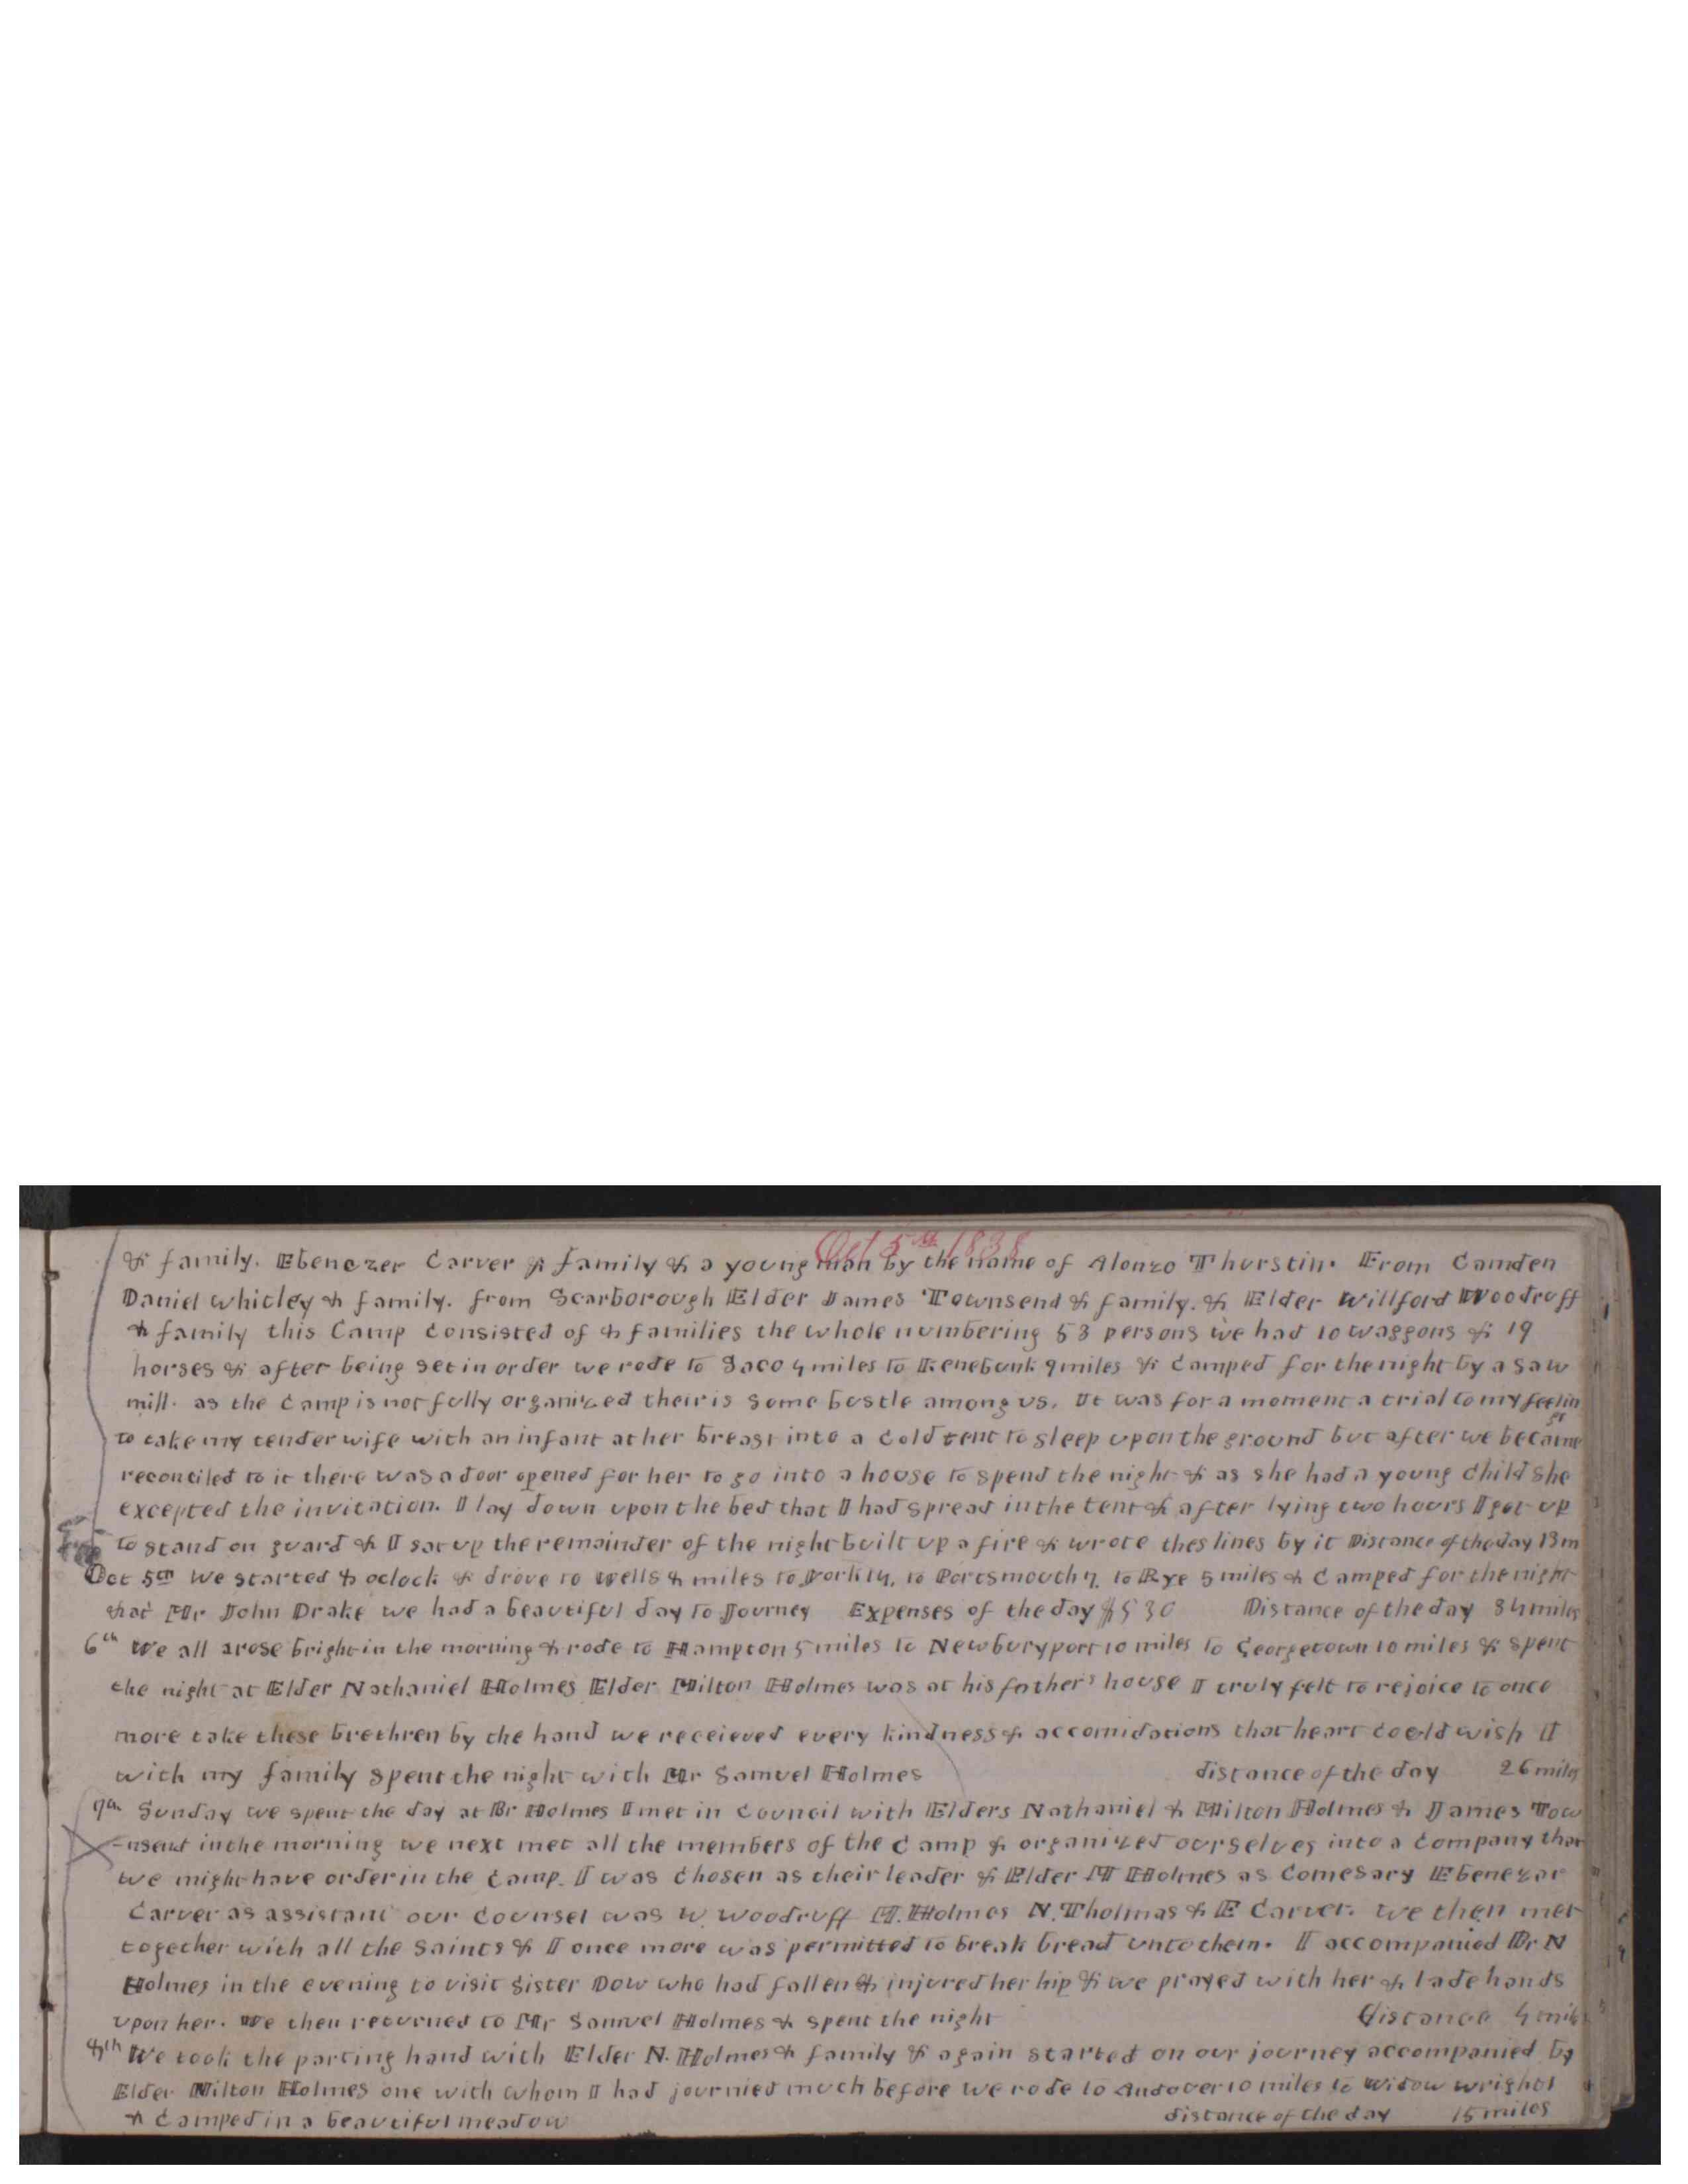 Oct 5th 1838
& family. Ebenezer Carver & family & a young man by the name of Alonzo Thurstin. From Camden
Daniel Whitley & family. from Scarborough Elder James Townsend & family. & Elder Willford Woodruff
& family this Camp Consisted of 8 families the whole numbering 53 persons we had 10 waggons & 19
horses & after being set in order we rode to Saco 4 miles to Kenebunk 9 miles & Camped for the night by a saw
mill. as the Camp is not fully organized their is some bustle among us. It was for a moment a trial to my feelin
gs
to take my tender wife with an infant at her breast into a Cold tent to sleep upon the ground but after we became
reconciled to it there was a door opened for her to go into a house to spend the night & as she had a young Child she
excepted the invitation. I lay down upon the bed that I had spread in the tent & after lying two hours I got up
to stand on guard & I sat up the remainder of the night built up a fire & wrote thes lines by it Distance of the day 13 m
Oct 5th We started 8 oclock & drove to Wells 8 miles to York 14, to Portsmouth 7. to Rye 5 miles & Camped for the night
at Mr John Drake we had a beautiful day to Journey Expenses of the day $5 30 Distance of the day 34 miles
6th We all arose bright in the morning & rode to Hampton 5 miles to Newburyport 10 miles to Georgetown 10 miles & spent
the night at Elder Nathaniel Holmes Elder Milton Holmes was at his father's house I truly felt to rejoice to once
more take these brethren by the hand we receieved every kindness & accomidations that heart could wish I
with my family spent the night with Mr Samuel Holmes distance of the day 26 miles
7th Sunday we spent the day at Br Holmes I met in Council with Elders Nathaniel & Milton Holmes & James Tow
-nsend in the morning we next met all the members of the Camp & organized ourselves into a Company that
we might have order in the Camp. I was Chosen as their leader & Elder M Holmes as Comesary Ebenezar
Carver as assistant our Counsel was W. Woodruff M. Holmes N. Tholmas & E Carver. We then met
together with all the Saints & I once more was permitted to break bread unto them. I accompanied Br N
Holmes in the evening to visit Sister Dow who had fallen & injured her hip & we prayed with her & lade hands
upon her. We then returned to Mr Samuel Holmes & spent the night distance 4 mile
8th We took the parting hand with Elder N. Holmes & family & again started on our journey accompanied by
Elder Milton Holmes one with whom I had journied much before we rode to Andover 10 miles to Widow Wrights
& Camped in a beautiful meadow distance of the day 15 miles